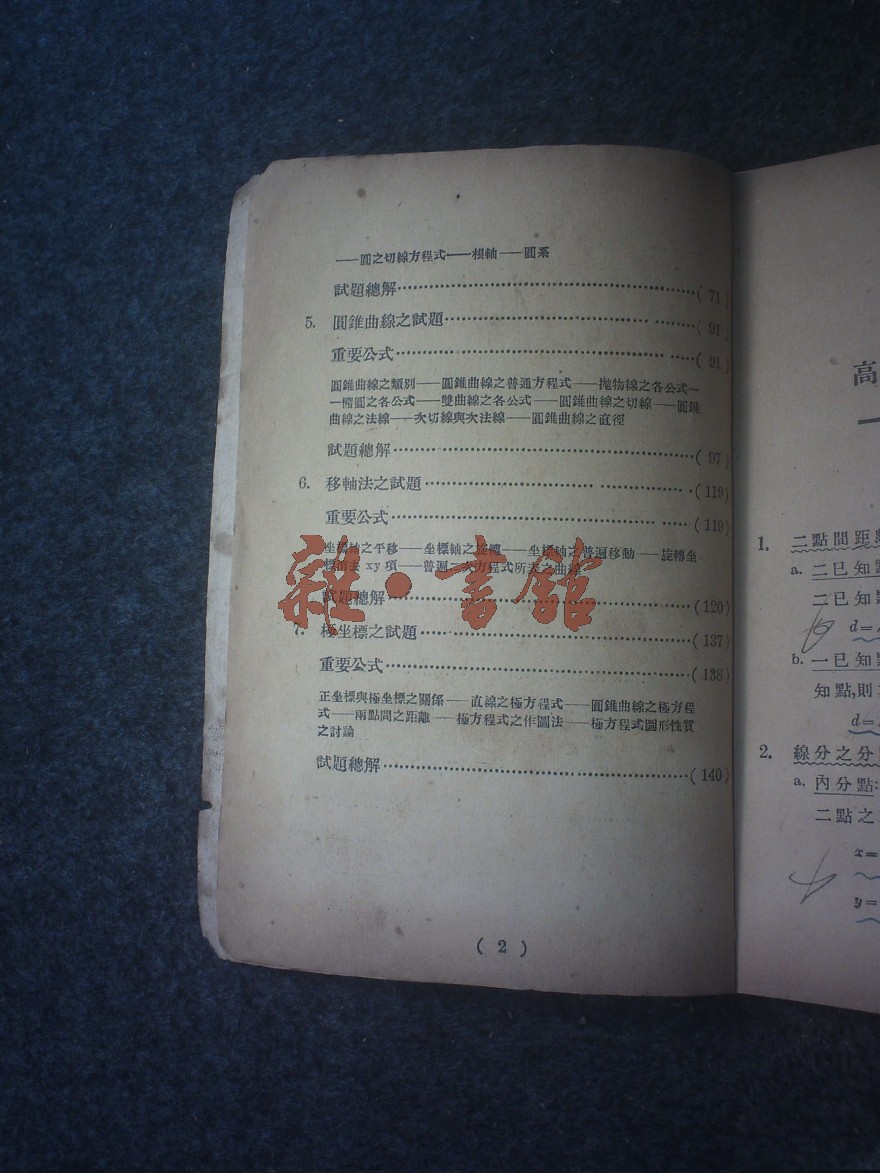 ——圓之切線方程式——根軸——圓系
試題總解……(71)
5. 圓錐曲線之試題……(91)
重要公式……(91)
圓錐曲線之類別——圓錐曲線之普通方程式——拋物線之各公式—
—橢圓之各公式——雙曲線之各公式——圓錐曲線之切線——圓錐
曲線之法線——次切線與次法線——圓錐曲線之直徑
試題總解……(97)
6. 移軸法之試題……(119)
重要公式……(119)
坐標軸之平移——坐標軸之旋轉——坐標軸之普遍移動——旋轉坐
標消去 xy 項——普遍二次方程式所表之曲線
試題總解……(120)
7. 極坐標之試題……(137)
重要公式……(138)
正坐標與極坐標之關係——直線之極方程式——圓錐曲線之極方程
式——兩點間之距離——極方程式之作圖法——極方程式圖形性質
之討論
試題總解……(140)
( 2 )
雜·書館
高
1. 二點間距離
a. 二已知點
二已知點
d=
b. 一已知點
知點,則
d=
2. 線分之分
a. 內分點:
二點之
x=
y=